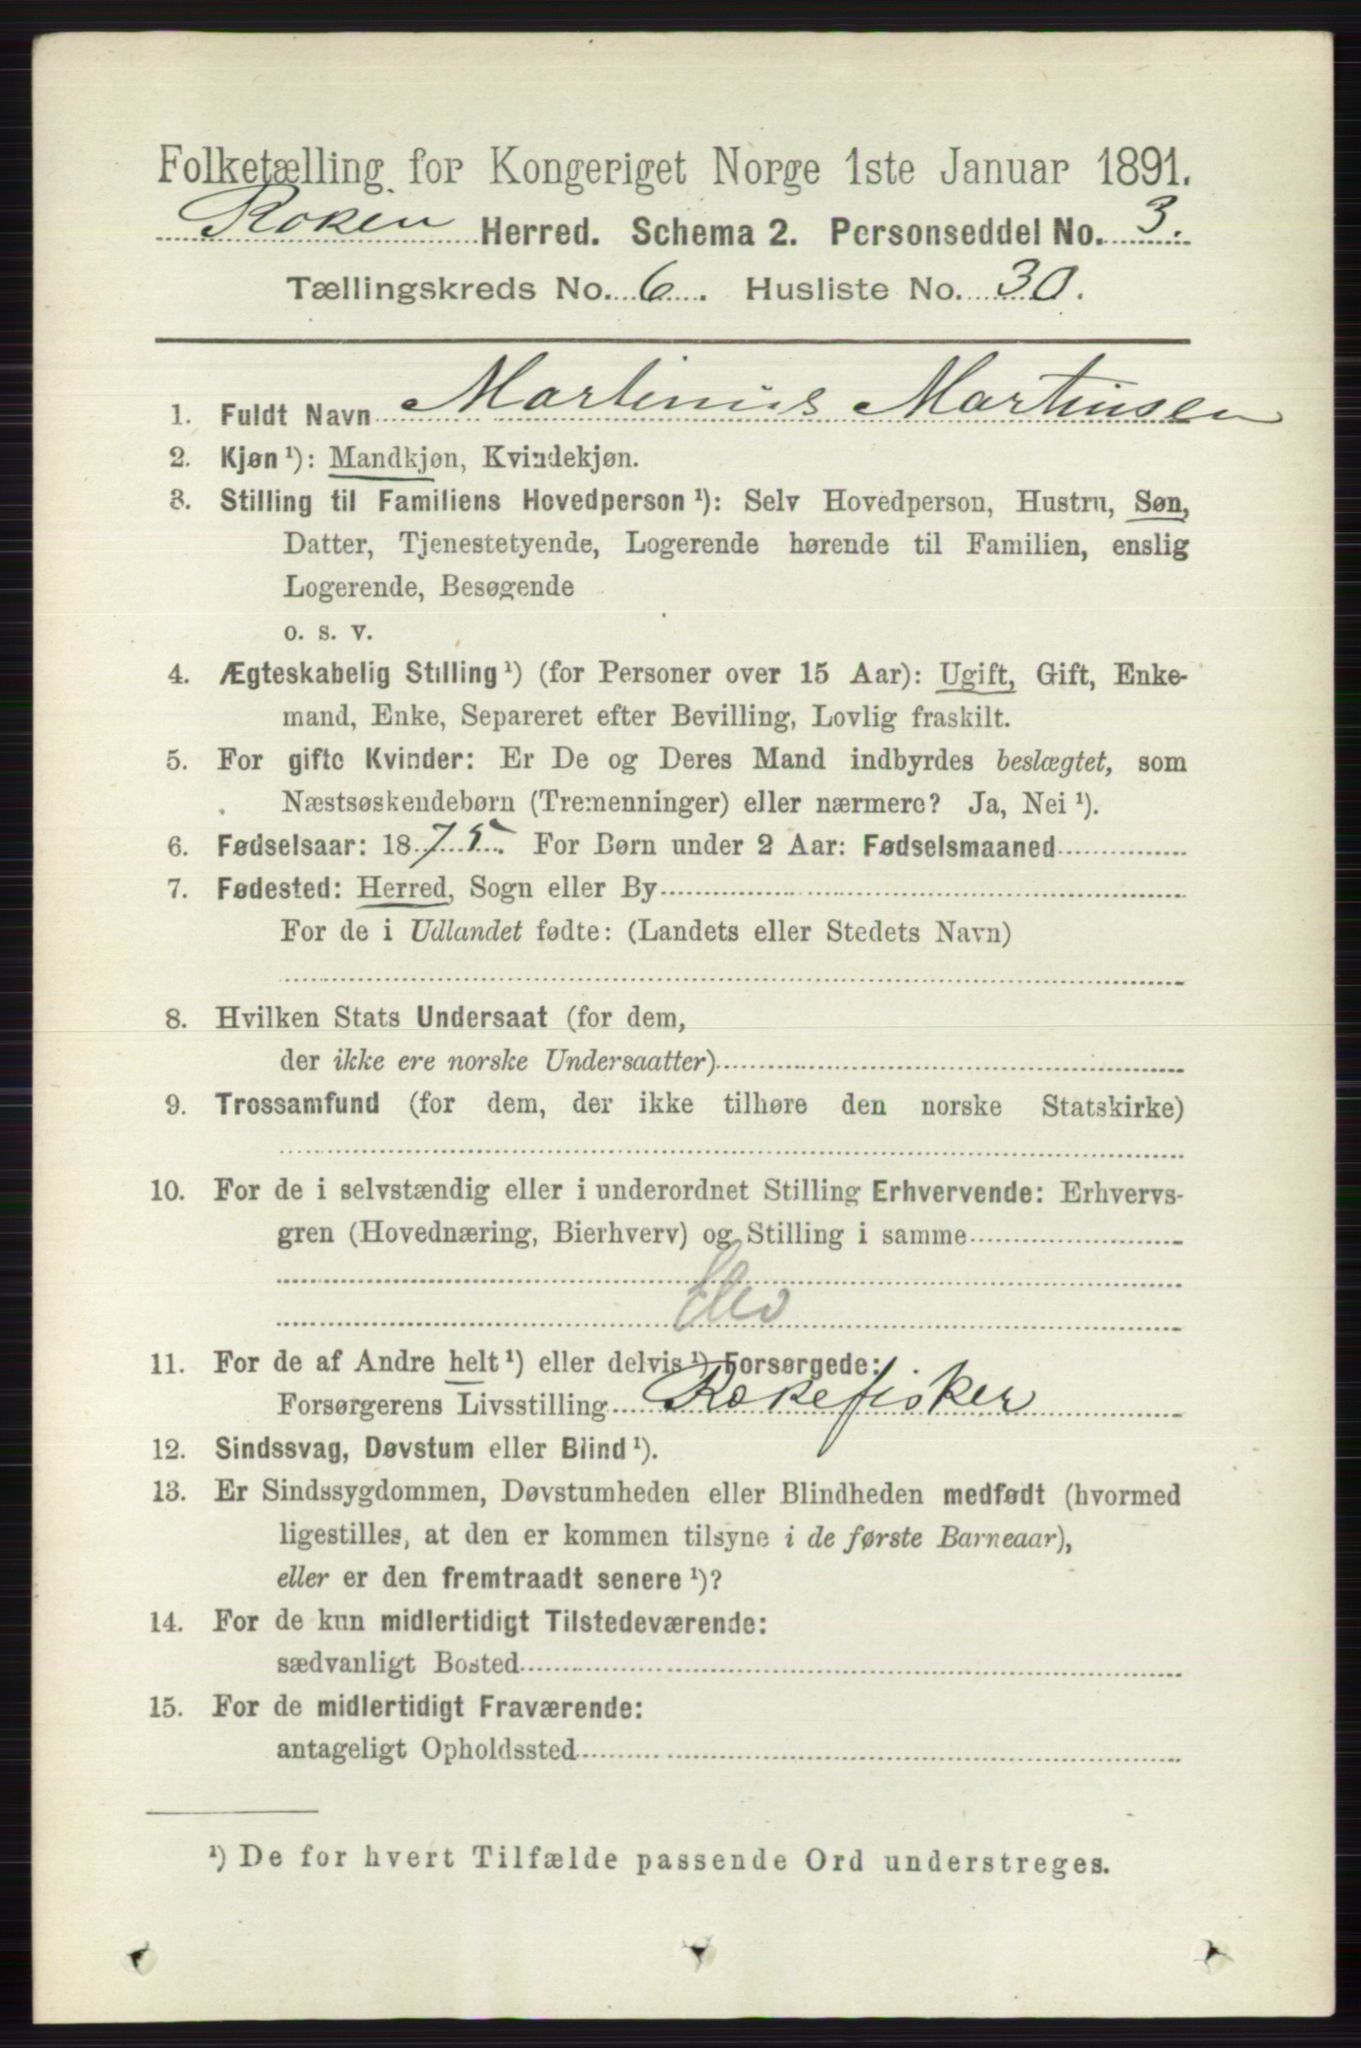 Folketælling for Kongeriget Norge 1ste Januar 1891.
Røken Herred. Schema 2. Personseddel No. 3.
Tællingskreds No. 6. Husliste No. 30.
1. Fuldt Navn Martinius Martinsen
2. Kjøn ¹): Mandkjøn, Kvindekjøn.
3. Stilling til Familiens Hovedperson ¹): Selv Hovedperson, Hustru, Søn,
Datter, Tjenestetyende, Logerende hørende til Familien, enslig
Logerende, Besøgende
o. s. v.
4. Ægteskabelig Stilling ¹) (for Personer over 15 Aar): Ugift, Gift, Enke-
mand, Enke, Separeret efter Bevilling, Lovlig fraskilt.
5. For gifte Kvinder: Er De og Deres Mand indbyrdes beslægtet, som
Næstsøskendebørn (Tremenninger) eller nærmere? Ja, Nei ¹).
6. Fødselsaar: 1875. For Børn under 2 Aar: Fødselsmaaned
7. Fødested: Herred, Sogn eller By
For de i Udlandet fødte: (Landets eller Stedets Navn)
8. Hvilken Stats Undersaat (for dem,
der ikke ere norske Undersaatter)
9. Trossamfund (for dem, der ikke tilhøre den norske Statskirke)
10. For de i selvstændig eller i underordnet Stilling Erhvervende: Erhvervs-
gren (Hovednæring, Bierhverv) og Stilling i samme
Elev
11. For de af Andre helt ¹) eller delvis ¹) Forsørgede:
Forsørgerens Livsstilling Rækefisker
12. Sindssvag, Døvstum eller Blind ¹).
13. Er Sindssygdommen, Døvstumheden eller Blindheden medfødt (hvormed
ligestilles, at den er kommen tilsyne i de første Barneaar),
eller er den fremtraadt senere ¹)?
14. For de kun midlertidigt Tilstedeværende:
sædvanligt Bosted
15. For de midlertidigt Fraværende:
antageligt Opholdssted
¹) De for hvert Tilfælde passende Ord understreges.